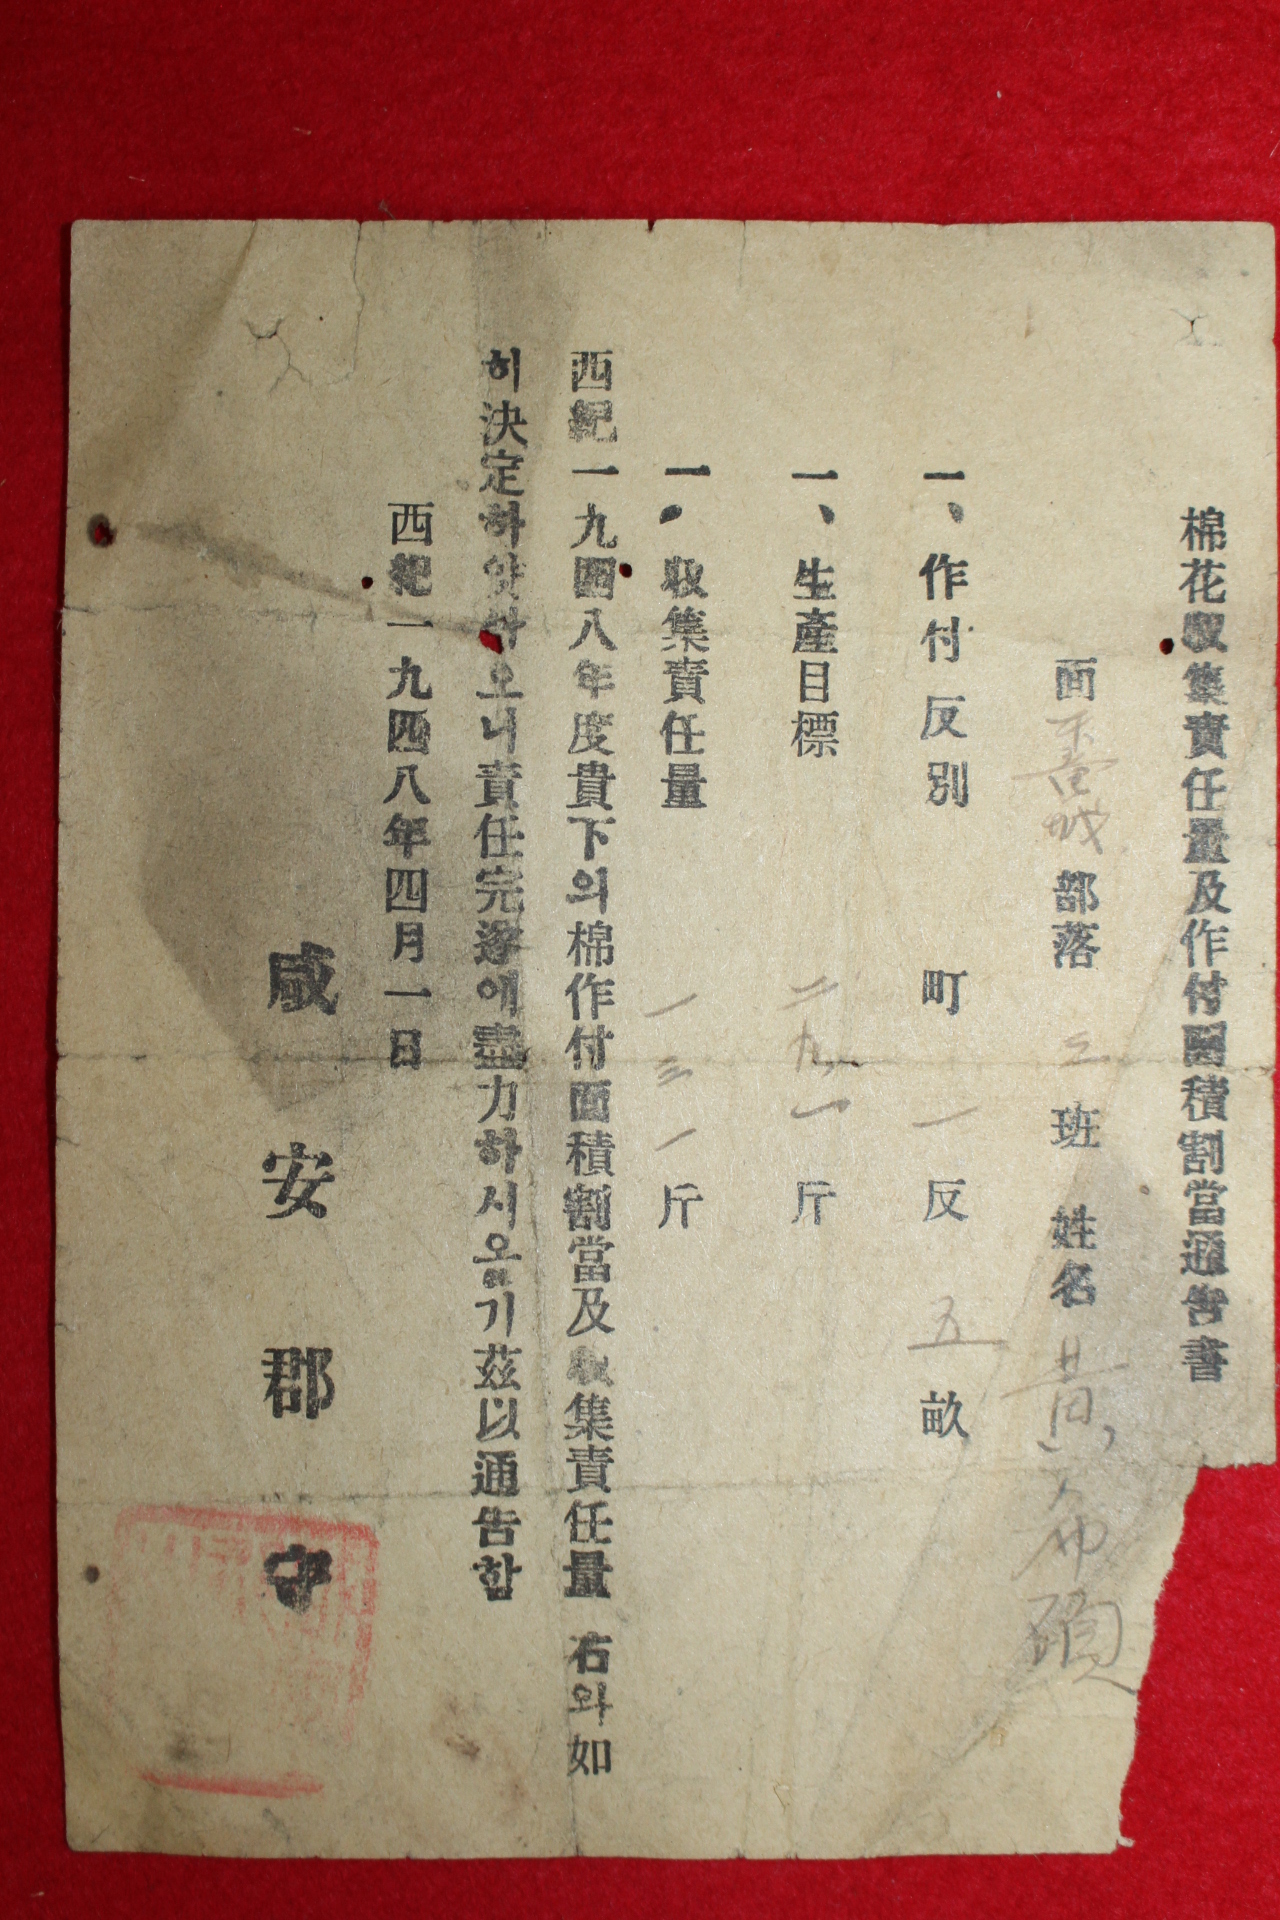 棉花収集責任量及作付面積割當通告書
面 城部落 三班 姓名 黃
一、作付反別 町一反五畝
一、生産目標 二九一斤
一、収集責任量 一三一斤
西紀一九四八年度貴下의棉作付面積割當及収集責任量 右와如
히決定하얏사오니責任完遂에盡力하시옵기茲以通告함
西紀一九四八年四月一日
咸安郡守